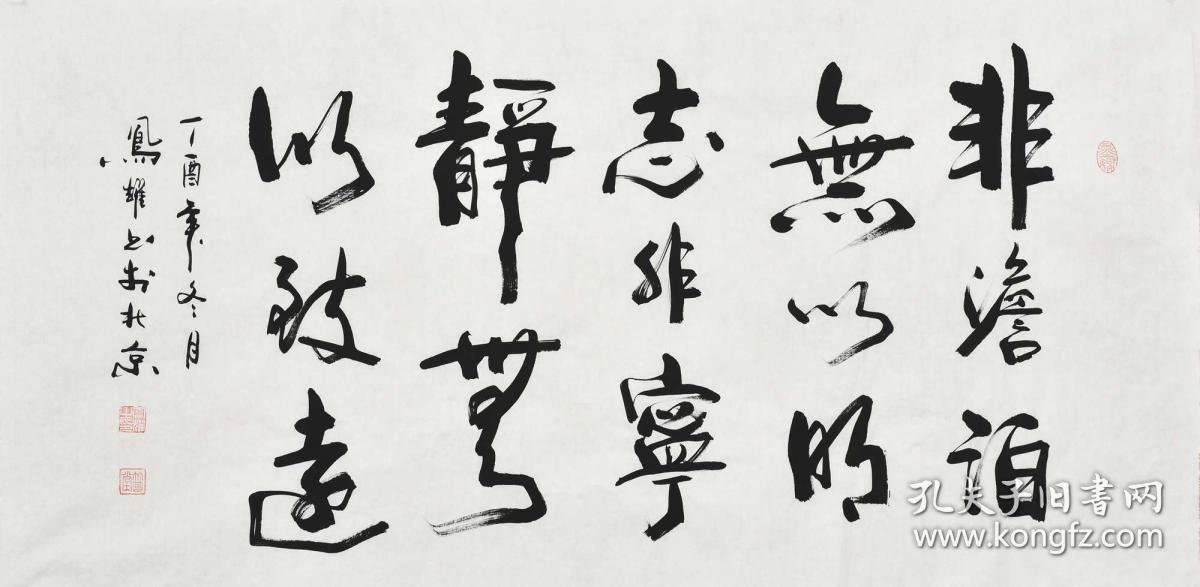 非澹泊
無以明
志非寧
靜無
以致遠
丁酉年冬月
鳳耀书於北京
孔夫子旧書网
www.kongfz.com